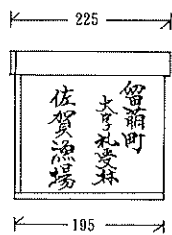 225
留萌町
大字礼受村
佐賀漁場
195